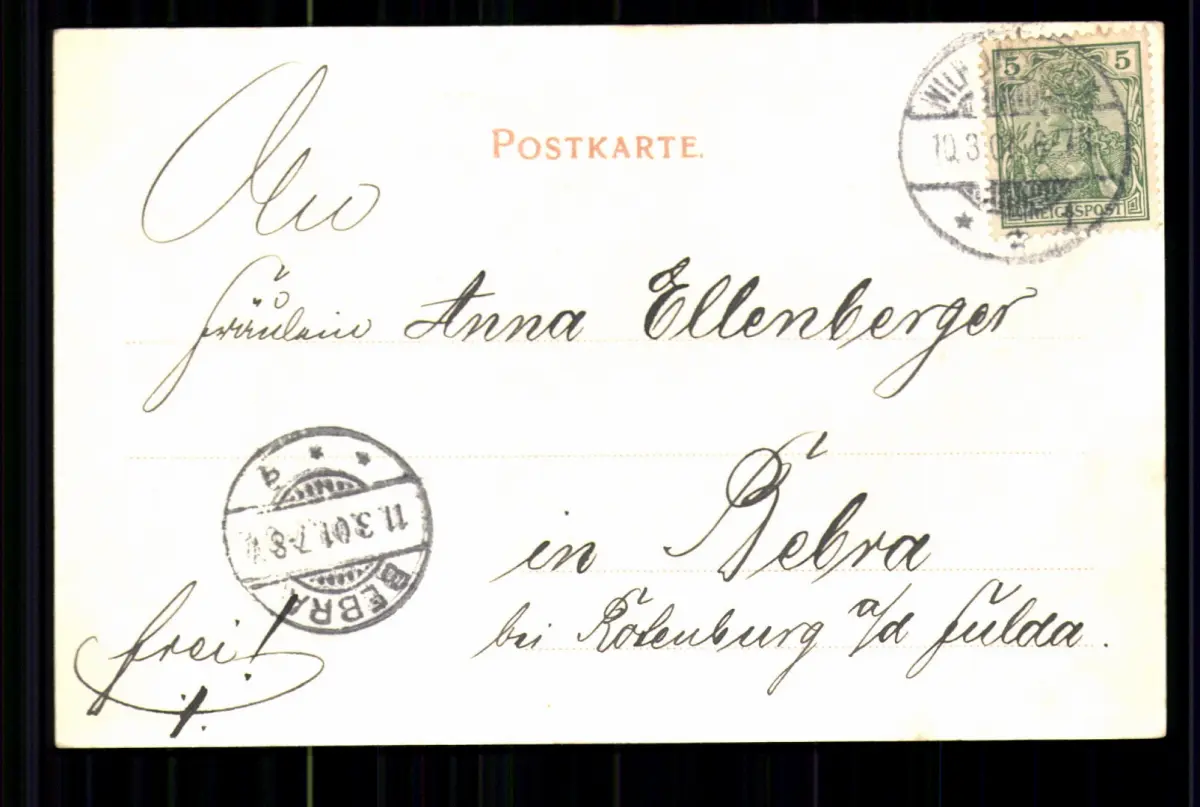 POSTKARTE.
5 5
REICHSPOST
10.3.01. 6-7N
An
Fräulein Anna Ellenberger
in Bebra
bei Rotenburg a/d Fulda.
frei!
1.
BEBRA
11.3.01. 7-8V
* *